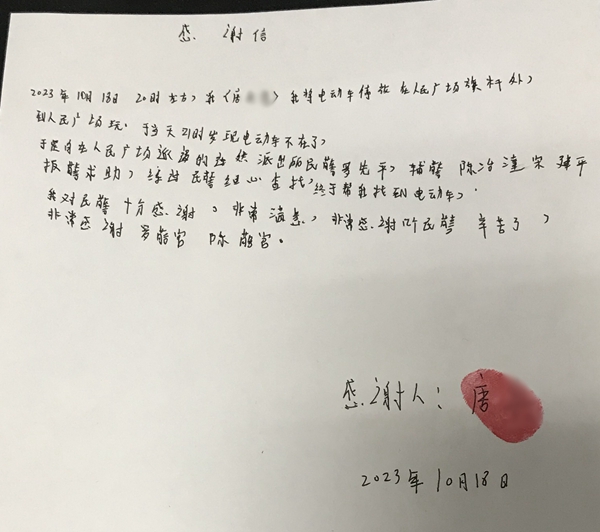 感 谢信
2023年10月18日 20时左右,我(唐 )我将电动车停放在人民广场旗杆处,
到人民广场玩,于当天21时发现电动车不在了,
于是向在人民广场巡逻的 派出所民警罗先平,辅警 陈冶 宋建平
报警求助,经过民警细心查找,终于帮我找到电动车,
我对民警十分感谢,非常满意,非常感谢 民警 辛苦了,
非常感谢 罗警官 陈警官。
感谢人:唐
2023年10月18日